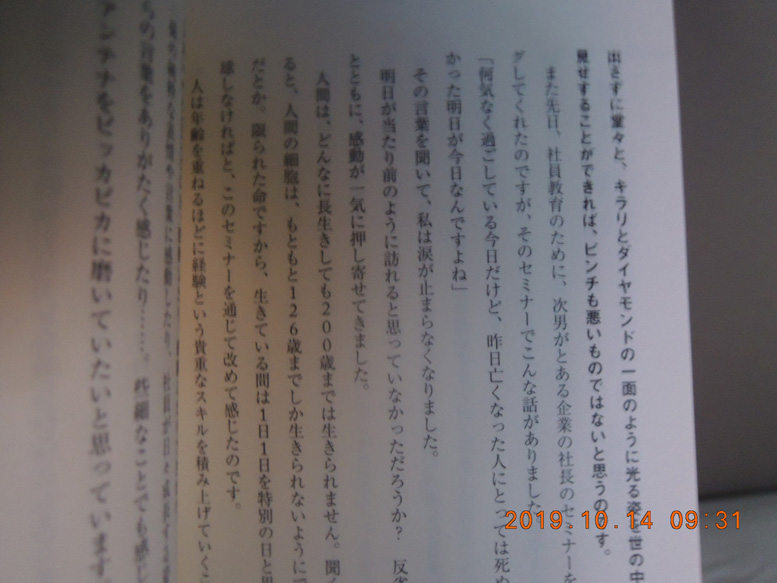 出さずに堂々と、キラリとダイヤモンドの一面のように光る姿を世の中
見せすることができれば、ピンチも悪いものではないと思うのです。
また先日、社員教育のために、次男がとある企業の社長のセミナーを
グしてくれたのですが、そのセミナーでこんな話がありました
「何気なく過ごしている今日だけど、昨日亡くなった人にとっては死ぬ
かった明日が今日なんですよね」
その言葉を聞いて、私は涙が止まらなくなりました。
明日が当たり前のように訪れると思っていなかっただろうか? 反省
とともに、感動が一気に押し寄せてきました。
人間は、どんなに長生きしても200歳までは生きられません。聞く
ると、人間の細胞は、もともと126歳までしか生きられないように
だとか。限られた命ですから、生きている間は1日1日を特別の日と思
球しなければと、このセミナーを通じて改めて感じたのです。
人は年齢を重ねるほどに経験という貴重なスキルを積み上げていくこ
に感動したり、社員が日々成長する
の言葉をありがたく感じたり……。些細なことでも感じ
アンテナをピッカピカに磨いていたいと思っています。
2019.10.14 09:31